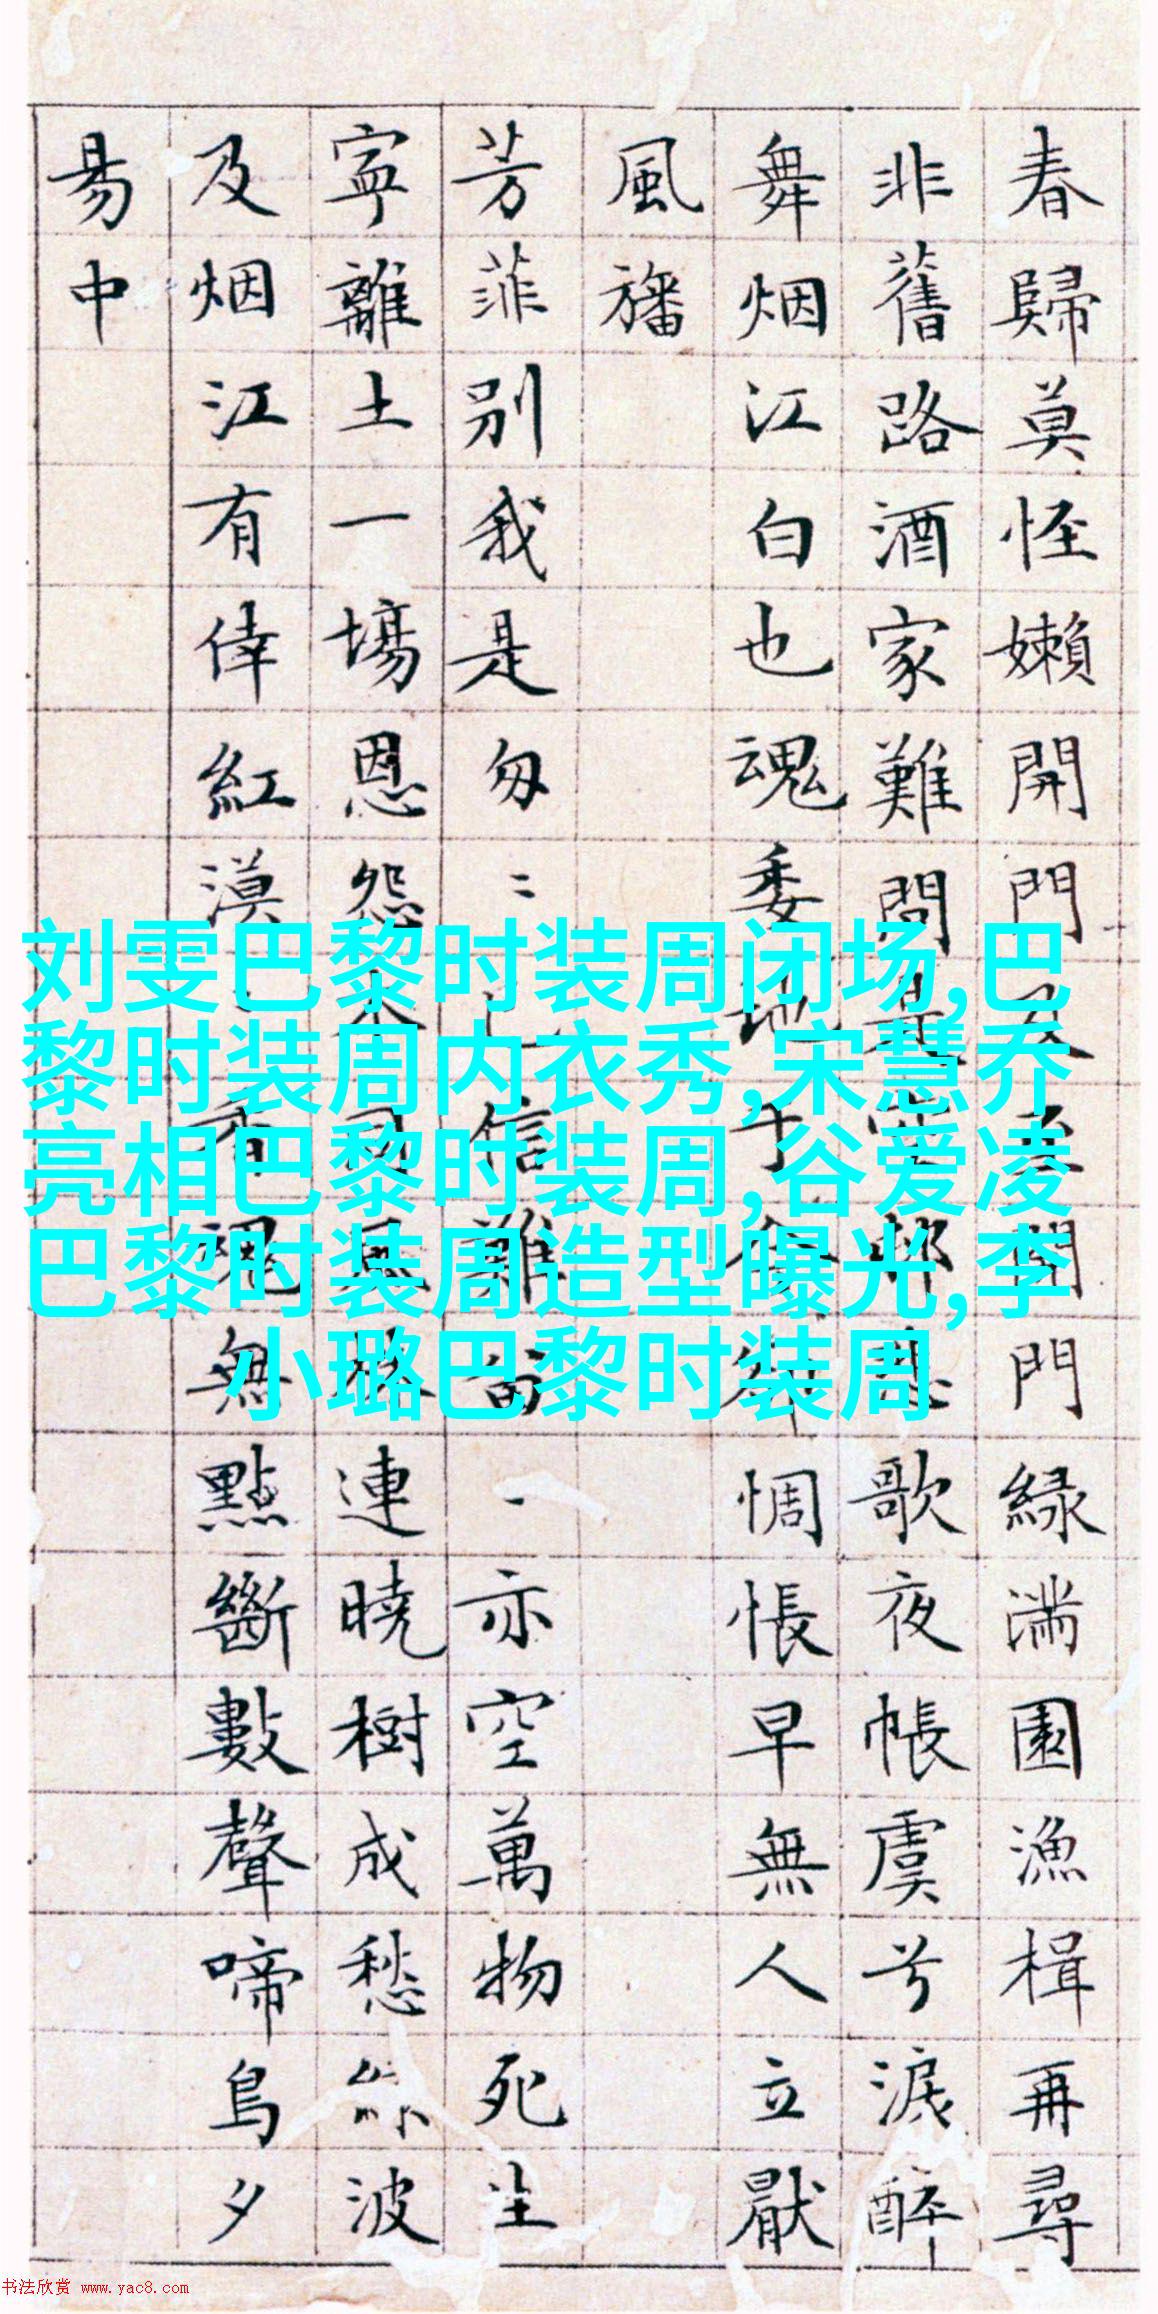 刘雯巴黎时装周闭场,巴
黎时装周内衣秀,宋慧乔
亮相巴黎时装周,谷爱凌
巴黎时装周造型曝光,李
小璐巴黎时装周
春歸莫怪嬾開門及至開門緑滿園漁楫再尋
非舊路酒家難問是空邨悲歌夜帳虞兮淚醉
舞烟江白也魂委地于今却惆悵早無人立厭
風旛
芳菲別我是匆〻已信難留一亦空萬物死生
寧離土一塲恩怨本同風株連曉樹成愁波
及烟江有倖紅漠香魂無點斷數聲啼鳥夕
易中
书法欣赏 www.yac8.com